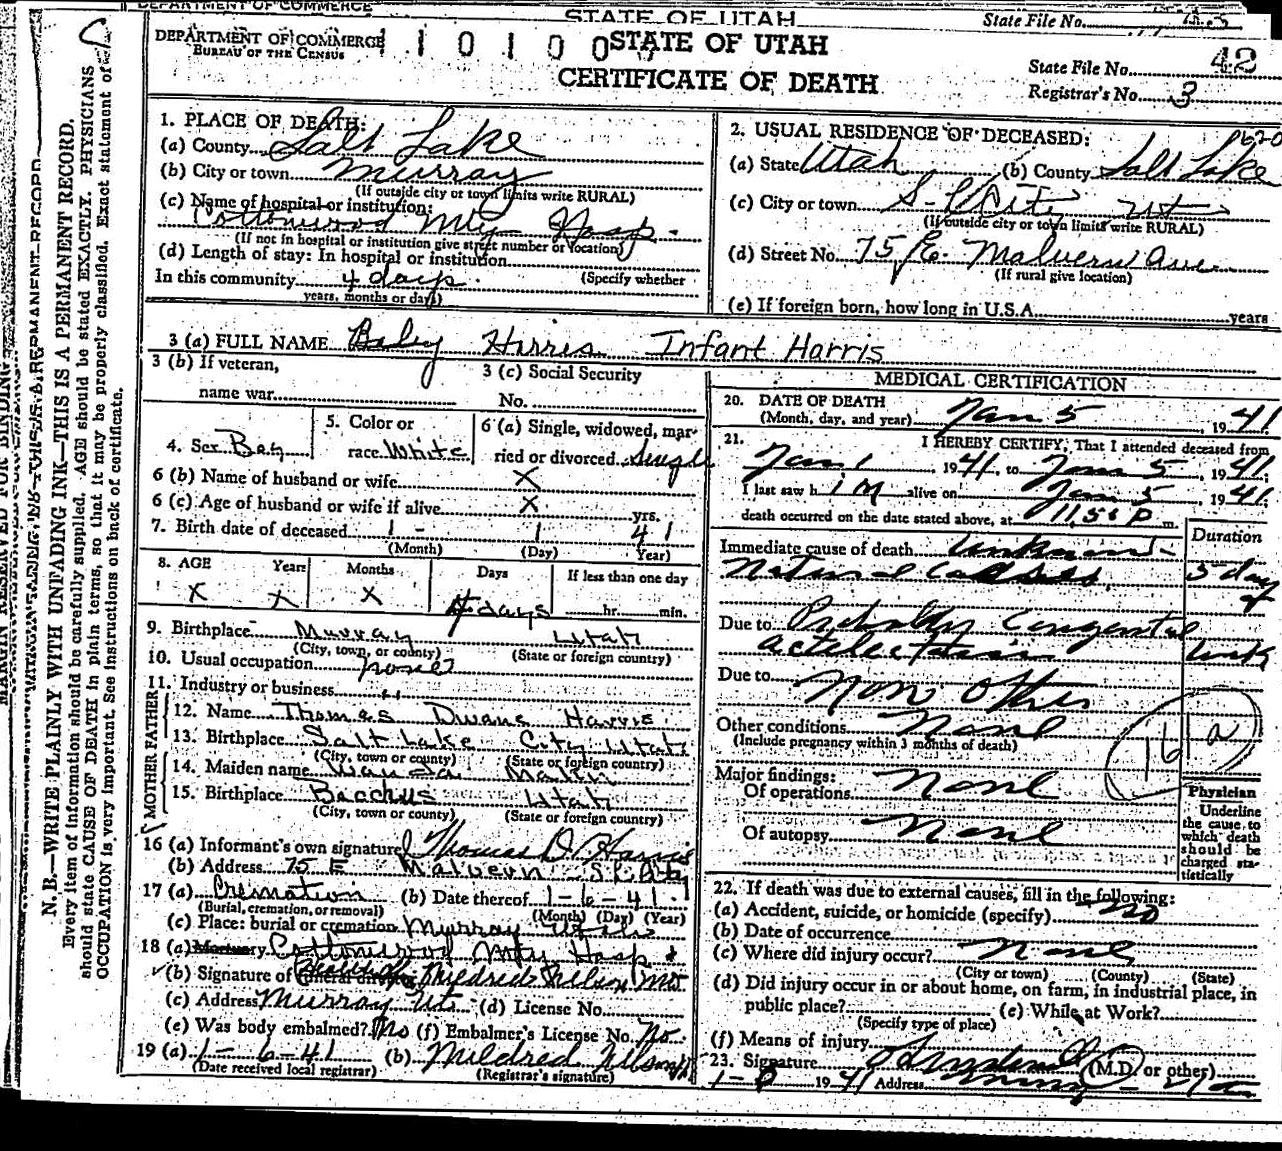 DEPARTMENT OF COMMERCE
STATE OF UTAH
State File No.
DEPARTMENT OF COMMERCE
BUREAU OF THE CENSUS
1 1 0 1 0 0
STATE OF UTAH
CERTIFICATE OF DEATH
State File No. 42
Registrar's No. 3
MARGIN RESERVED FOR BINDING
N. B.—WRITE PLAINLY WITH UNFADING INK—THIS IS A PERMANENT RECORD.
Every item of information should be carefully supplied. AGE should be stated EXACTLY. PHYSICIANS
should state CAUSE OF DEATH in plain terms, so that it may be properly classified. Exact statement of
OCCUPATION is very important. See instructions on back of certificate.
1. PLACE OF DEATH:
(a) County Salt Lake
(b) City or town Murray
(If outside city or town limits write RURAL)
(c) Name of hospital or institution:
Cottonwood Mty Hosp.
(If not in hospital or institution give street number or location)
(d) Length of stay: In hospital or institution
In this community 4 days. (Specify whether
years, months or days)
2. USUAL RESIDENCE OF DECEASED:
(a) State Utah (b) County Salt Lake
(c) City or town S. L. City Ut
(If outside city or town limits write RURAL)
(d) Street No. 75 E. Malvern Ave.
(If rural give location)
(e) If foreign born, how long in U.S.A. years
3 (a) FULL NAME Baby Harris Infant Harris
3 (b) If veteran,
name war
3 (c) Social Security
No.
4. Sex Boy
5. Color or
race White
6 (a) Single, widowed, mar-
ried or divorced Single
6 (b) Name of husband or wife X
6 (c) Age of husband or wife if alive X yrs.
7. Birth date of deceased 1 - 1 41
(Month) (Day) Year)
8. AGE Years Months Days If less than one day
X X X 4 days hr. min.
9. Birthplace Murray Utah
(City, town, or county) (State or foreign country)
10. Usual occupation none
11. Industry or business
FATHER
12. Name Thomas Dwane Harris
13. Birthplace Salt Lake City Utah
(City, town or county) (State or foreign country)
MOTHER
14. Maiden name Wanda
15. Birthplace Bacchus Utah
(City, town or county) (State or foreign country)
16 (a) Informant's own signature Thomas D. Harris
(b) Address 75 E Malvern S. L. City
17 (a) Cremation (b) Date thereof 1-6-41
(Burial, cremation, or removal) (Month) (Day) (Year)
(c) Place: burial or cremation Murray Utah
18 (a) Mortuary Cottonwood Mty Hosp
(b) Signature of funeral director Mildred Nelson
(c) Address Murray Ut. (d) License No.
(e) Was body embalmed? No (f) Embalmer's License No. No.
19 (a) 1-6-41 (b) Mildred Nelson
(Date received local registrar) (Registrar's signature)
MEDICAL CERTIFICATION
20. DATE OF DEATH
(Month, day, and year) Jan 5, 1941
21. I HEREBY CERTIFY, That I attended deceased from
Jan 1, 1941, to Jan 5, 1941.
I last saw h im alive on Jan 5 1941.
death occurred on the date stated above, at 11:50 P m.
Duration
Immediate cause of death Unknown -
Natural causes 5 days
Due to Probably Congental
actelectasis
Due to Non Other
Other conditions None
(Include pregnancy within 3 months of death)
161 a
Major findings:
Of operations None
Of autopsy None
Physician
Underline
the cause to
which death
should be
charged sta-
tistically
22. If death was due to external causes, fill in the following:
(a) Accident, suicide, or homicide (specify) no
(b) Date of occurrence
(c) Where did injury occur? None
(City or town) (County) (State)
(d) Did injury occur in or about home, on farm, in industrial place, in
public place? (e) While at Work?
(Specify type of place)
(f) Means of injury
23. Signature (M.D. or other)
1941 Address Murray - Utah